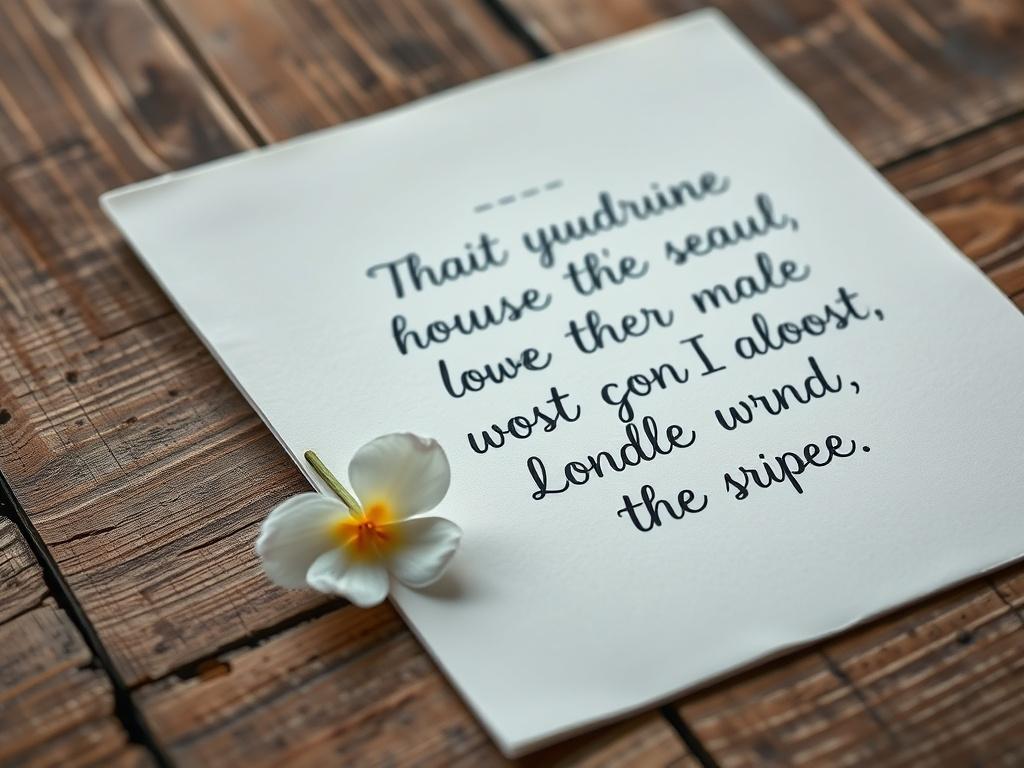 Thait yuudruine
house thi'e seaul,
lowe ther male
wost gon I aloost,
Londle wrnd,
the sripee.